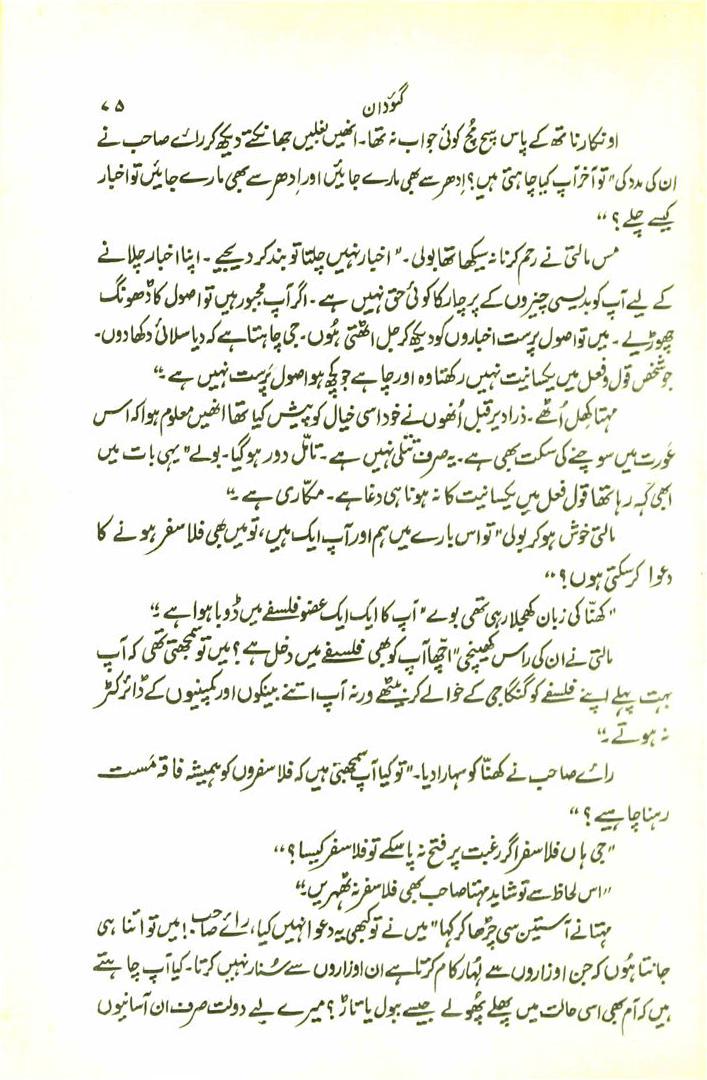 گئودان ۷۵
اونکار ناتھ کے پاس سچ مچ کوئی جواب نہ تھا۔ انھیں بغلیں جھانکتے دیکھ کر رائے صاحب نے
ان کی مدد کی "تو آخر آپ کیا چاہتی ہیں؟ اِدھر سے بھی مارے جائیں اور اِدھر سے بھی مارے جائیں تو اخبار
کیسے چلے؟"
مس مالتی نے رحم کرنا نہ سیکھا تھا بولی۔ "اخبار نہیں چلتا تو بند کر دیجیے۔ اپنا اخبار چلانے
کے لیے آپ کو بدیسی چیزوں کے پرچار کا کوئی حق نہیں ہے۔ اگر آپ مجبور ہیں تو اصول کا ڈھونگ
چھوڑیے۔ میں تو اصول پرست اخباروں کو دیکھ کر جل اٹھتی ہُوں۔ جی چاہتا ہے کہ دیا سلائی دکھا دوں۔
جو شخص قول و فعل میں یکسانیت نہیں رکھتا وہ اور چاہے جو کچھ ہو اصول پرست نہیں ہے۔"
مہتا کھل اُٹھے۔ ذرا دیر قبل اُنھوں نے خود اسی خیال کو پیش کیا تھا انھیں معلوم ہوا کہ اس
عورت میں سوچنے کی سکت بھی ہے۔ یہ صرف تتلی نہیں ہے۔ تامّل دور ہو گیا۔ بولے "یہی بات میں
ابھی کہہ رہا تھا قول فعل میں یکسانیت کا نہ ہونا ہی دغا ہے۔ مکّاری ہے۔"
مالتی خوش ہو کر بولی "تو اس بارے میں ہم اور آپ ایک ہیں، تو میں بھی فلاسفر ہونے کا
دعوا کر سکتی ہوں؟"
"کھنّا کی زبان کھجلا رہی تھی بولے "آپ کا ایک ایک عضو فلسفے میں ڈوبا ہوا ہے۔"
مالتی نے ان کی راس کھینچی "اچّھا آپ کو بھی فلسفے میں دخل ہے؟ میں تو سمجھتی تھی کہ آپ
بہت پہلے اپنے فلسفے کو گنگا جی کے حوالے کر بیٹھے ورنہ آپ اتنے بینکوں اور کمپنیوں کے ڈائرکٹر
نہ ہوتے۔"
رائے صاحب نے کھنّا کو سہارا دیا۔ "تو کیا آپ سمجھتی ہیں کہ فلاسفروں کو ہمیشہ فاقہ مست
رہنا چاہیے؟"
"جی ہاں فلاسفر اگر رغبت پر فتح نہ پا سکے تو فلاسفر کیسا؟"
"اس لحاظ سے تو شاید مہتا صاحب بھی فلاسفر نہ ٹھہریں۔"
مہتا نے آستین سی چڑھا کر کہا "میں نے تو کبھی یہ دعوا نہیں کیا، رائے صاحب! میں تو اتنا ہی
جانتا ہُوں کہ جن اوزاروں سے لُہار کام کرتا ہے ان اوزاروں سے سُنار نہیں کرتا۔ کیا آپ چاہتے
ہیں کہ آم بھی اسی حالت میں پھلے پھُولے جیسے ببول یا تاڑ؟ میرے لیے دولت صرف ان آسانیوں